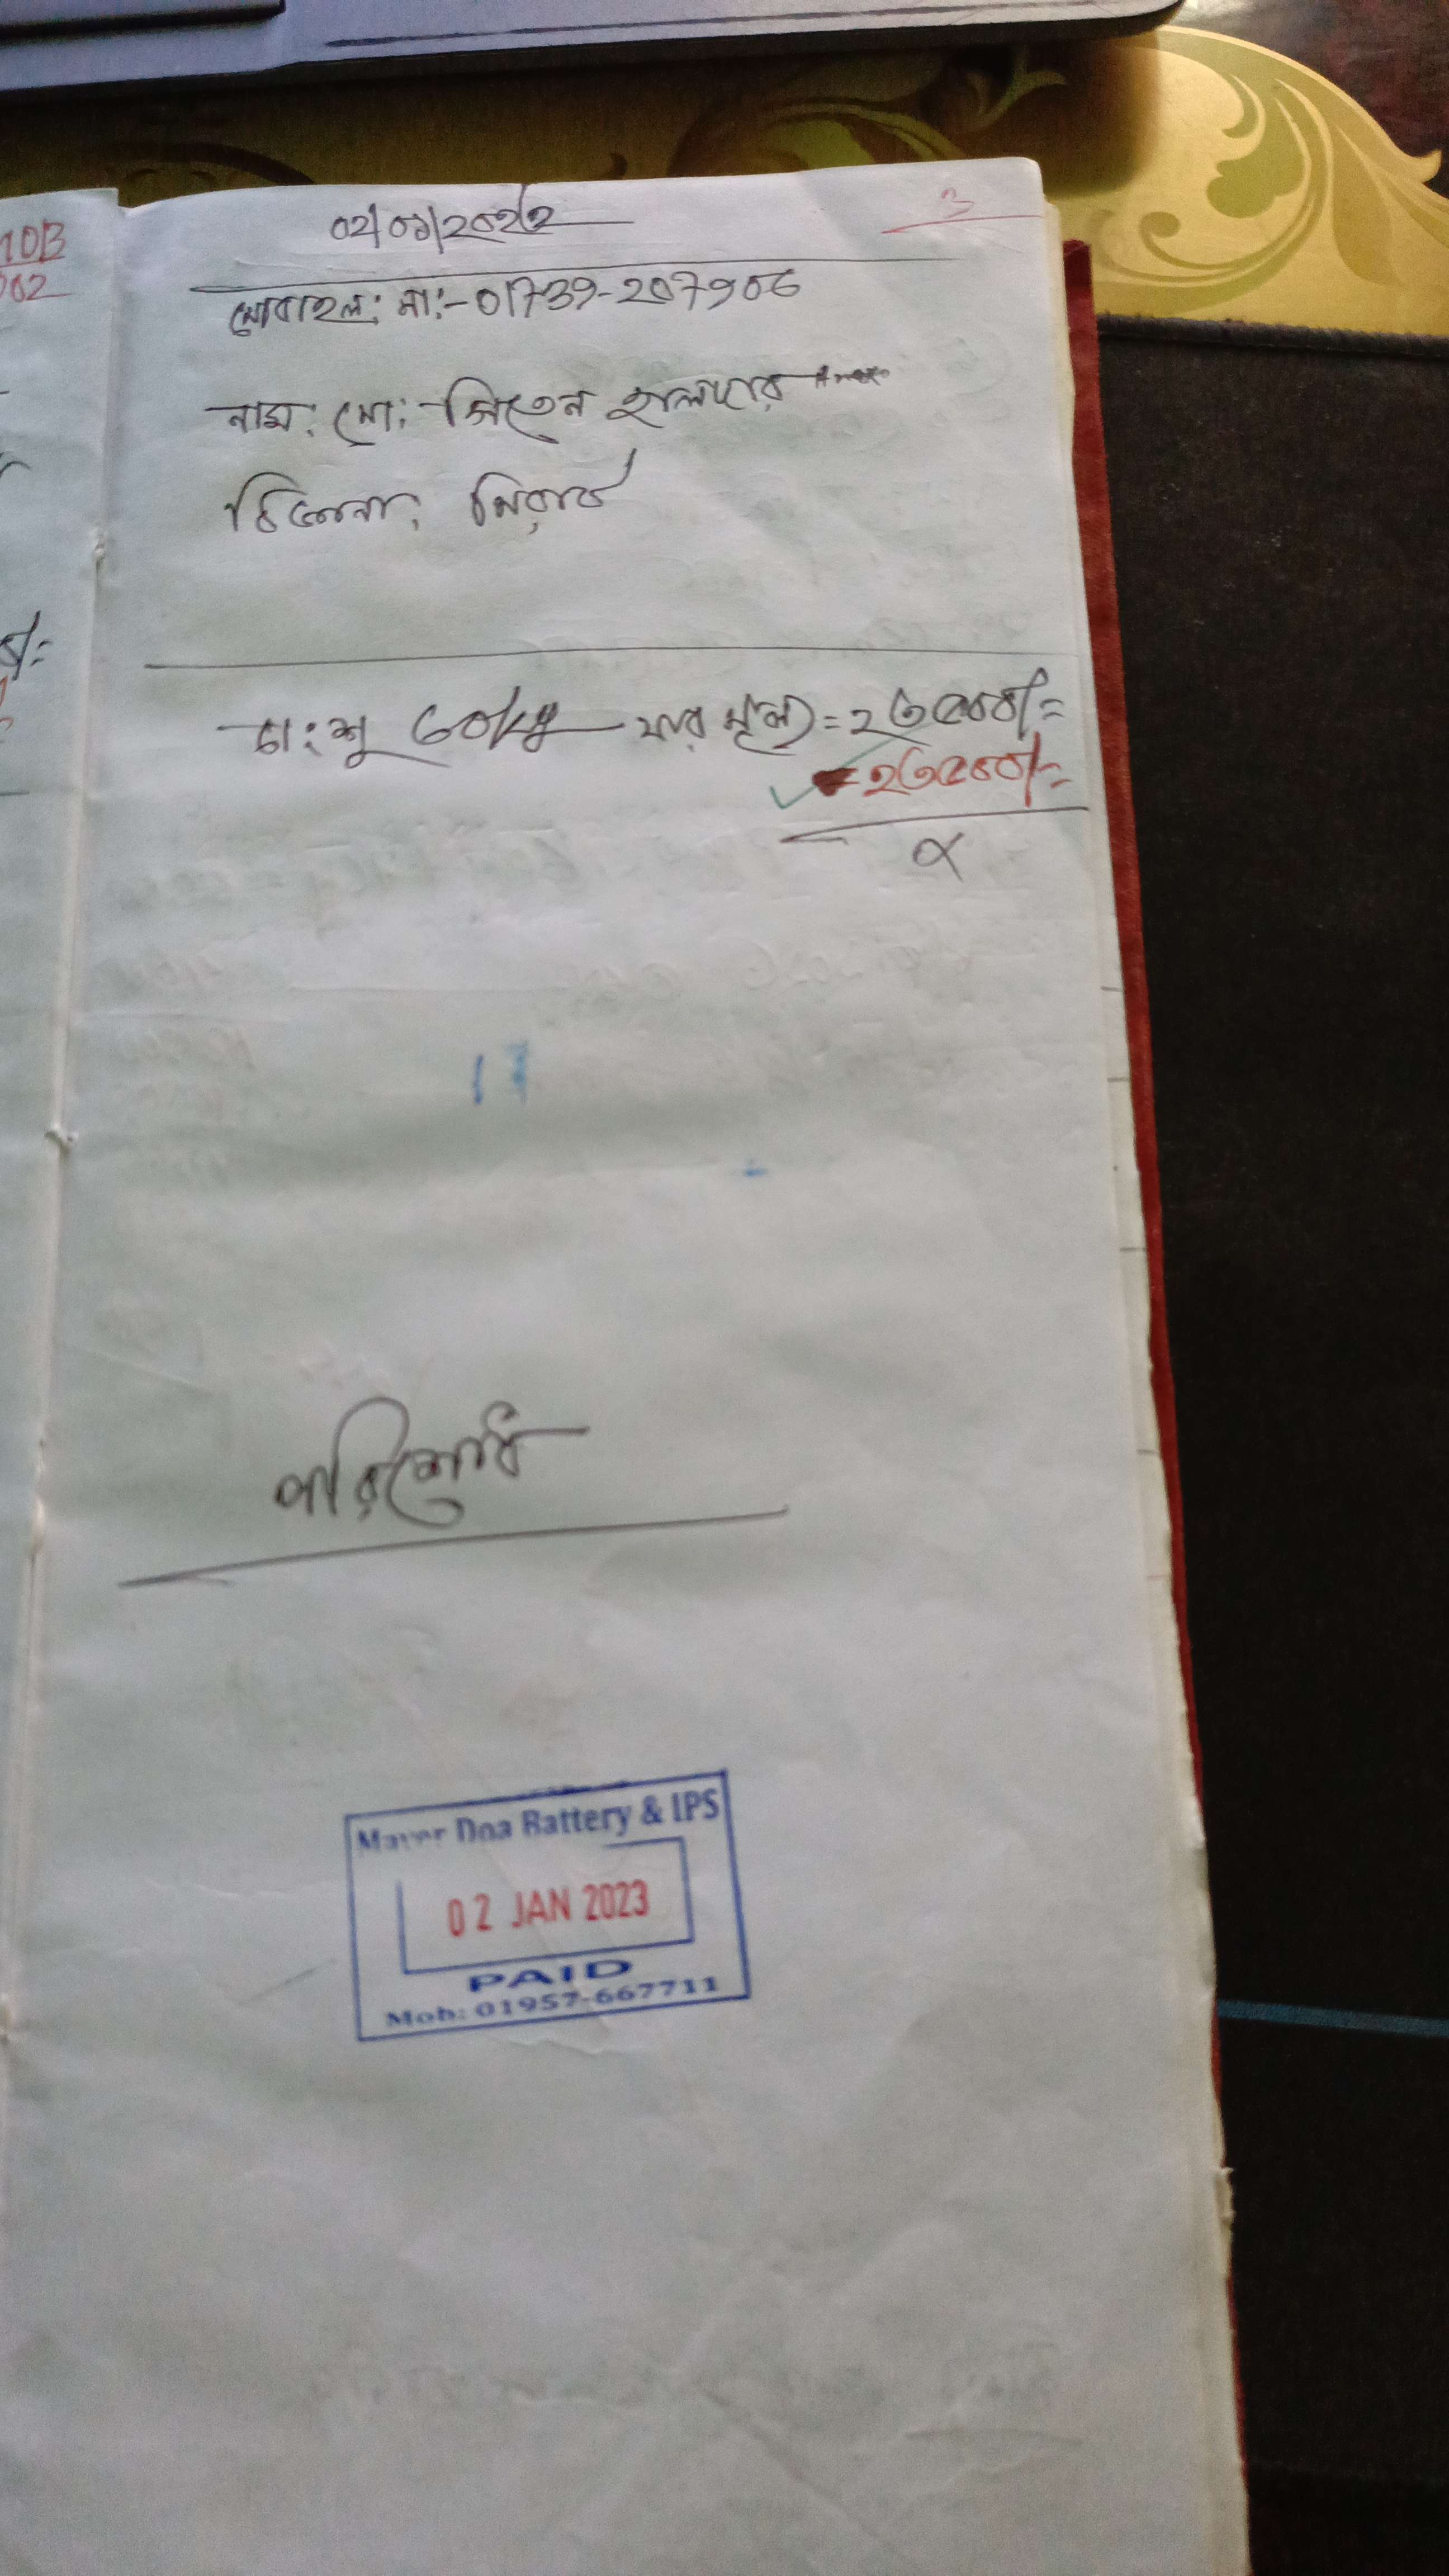 10B
3
002
02/০১/২০২২
মোবাইল: না:-01739-207906
নাম: মো: জিতেন হালদার
ঠিকানা:
চা: শু ৩০kg যার মূল্য = ২৩৫০০/=
২৩৫০০/=
পরিশোধ
Mayer Doa Battery & IPS
02 JAN 2023
PAID
Mob: 01957-667711